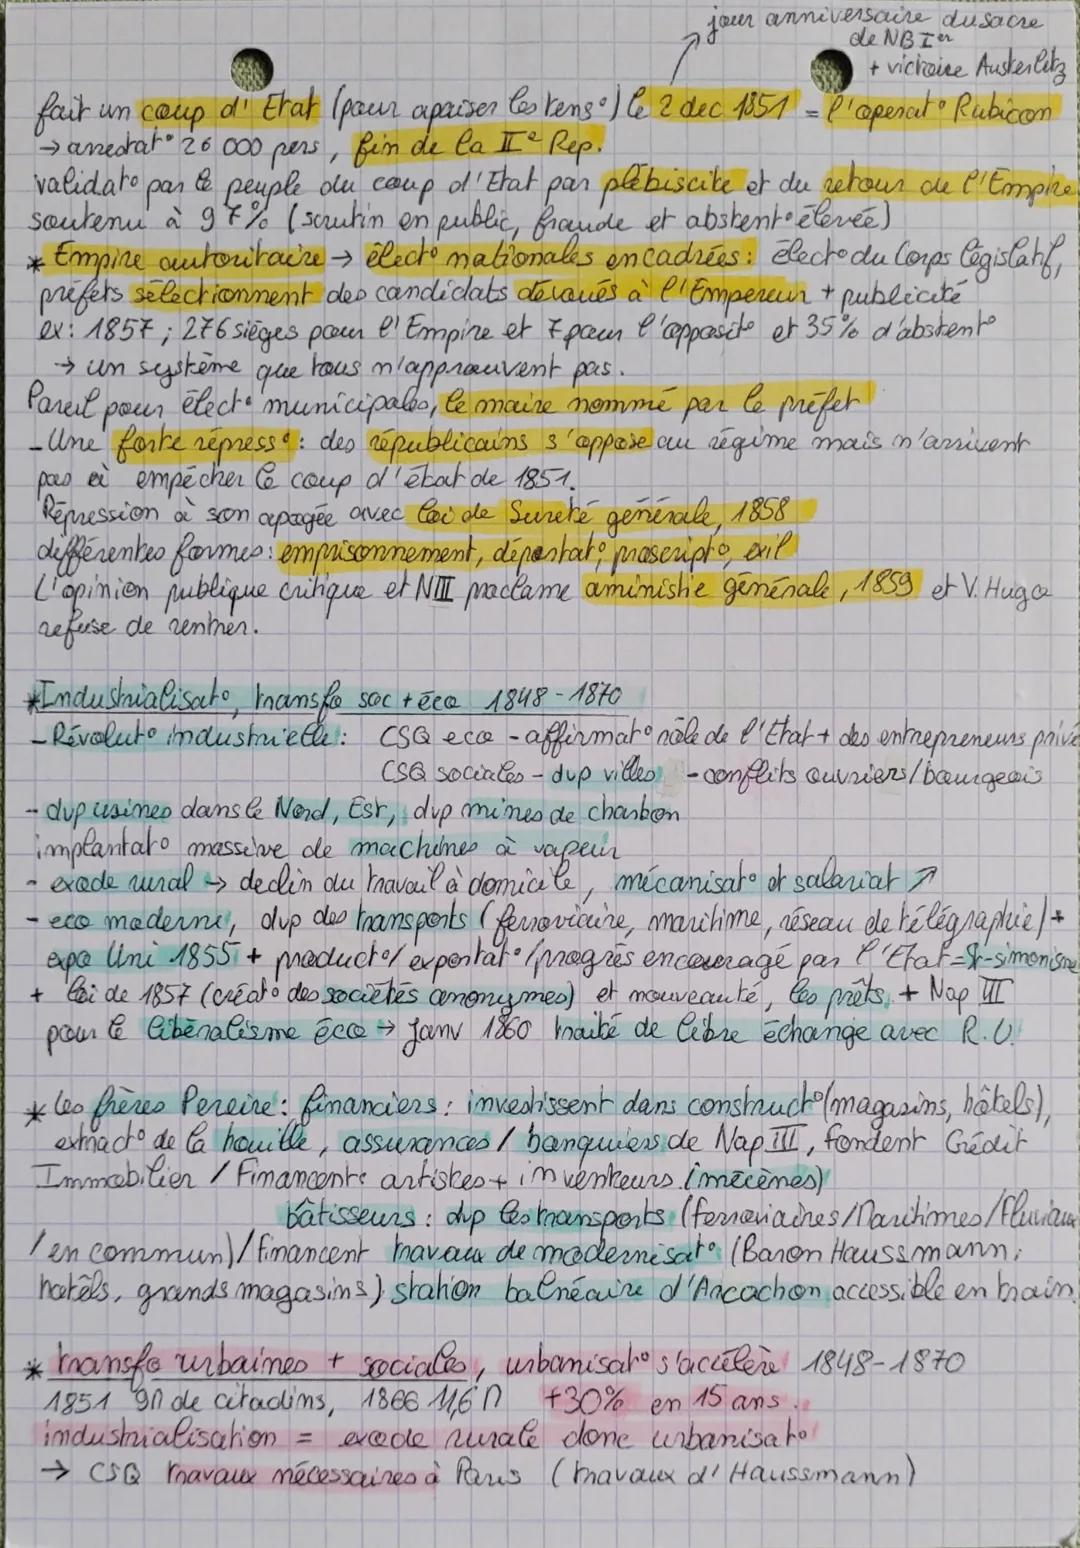 jour anniversaire du sacre
de NB Ier
+ victoire Austerlitz
fait un coup d'Etat (pour apaiser les tens°) le 2 dec 1851 = l'operat° Rubicon
→ arrestat° 26 000 pers, fin de la IIe Rep.
validat° par le peuple du coup d'Etat par plébiscite et du retour de l'Empire
soutenu à 97% (scrutin en public, fraude et abstent° élevée)
* Empire autoritaire → élect° nationales encadrées : élect° du Corps législatif,
préfets sélectionnent des candidats dévoués à l'Empereur + publicité
ex : 1857 ; 276 sièges pour l'Empire et 7 pour l'opposit° et 35% d'abstent°
→ un système que tous n'approuvent pas.
Pareil pour élect° municipales, le maire nommé par le préfet
- Une forte répress° : des républicains s'oppose au régime mais n'arrivent
pas à empêcher le coup d'état de 1851.
Répression à son apogée avec loi de Sureté générale, 1858
différentes formes : emprisonnement, déportat°, proscript°, exil
L'opinion publique critique et NIII proclame aministie générale, 1859 et V. Hugo
refuse de rentrer.
* Industrialisat°, transfo soc + éco 1848-1870
- Révolut° industrielle : CSQ eco - affirmat° rôle de l'Etat + des entrepreneurs privé
CSQ sociales - dvp villes - conflits ouvriers/bourgeois
- dvp usines dans le Nord, Est, dvp mines de charbon
implantat° massive de machines à vapeur
- exode rural → declin du travail à domicile, mécanisat° et salariat ↗
- eco moderne, dvp des transports (ferroviaire, maritime, réseau de télégraphie) +
expo Uni 1855 + product°/exportat°/progrès encouragé par l'Etat = St-simonisme
+ loi de 1857 (créat° des sociétés anonymes) et nouveauté, les prêts, + Nap III
pour le libéralisme éco → Janv 1860 traité de libre échange avec R.U.
* Les frères Pereire : financiers : investissent dans construct° (magasins, hôtels),
extract° de la houille, assurances / banquiers de Nap III, fondent Crédit
Immobilier / Financent artistes + inventeurs (mécènes)
bâtisseurs : dvp les transports (ferroviaires/Maritimes/Fluviaux
/en commun)/Financent travaux de modernisat° (Baron Haussmann,
hotêls, grands magasins) station balnéaire d'Arcachon accessible en train.
* transfo urbaines + sociales, urbanisat° s'accélère 1848-1870
1851 9M de citadins, 1866 11,6 M +30% en 15 ans.
industrialisation = exode rurale donc urbanisat°
→ CSQ travaux nécessaires à Paris (travaux d'Haussmann)